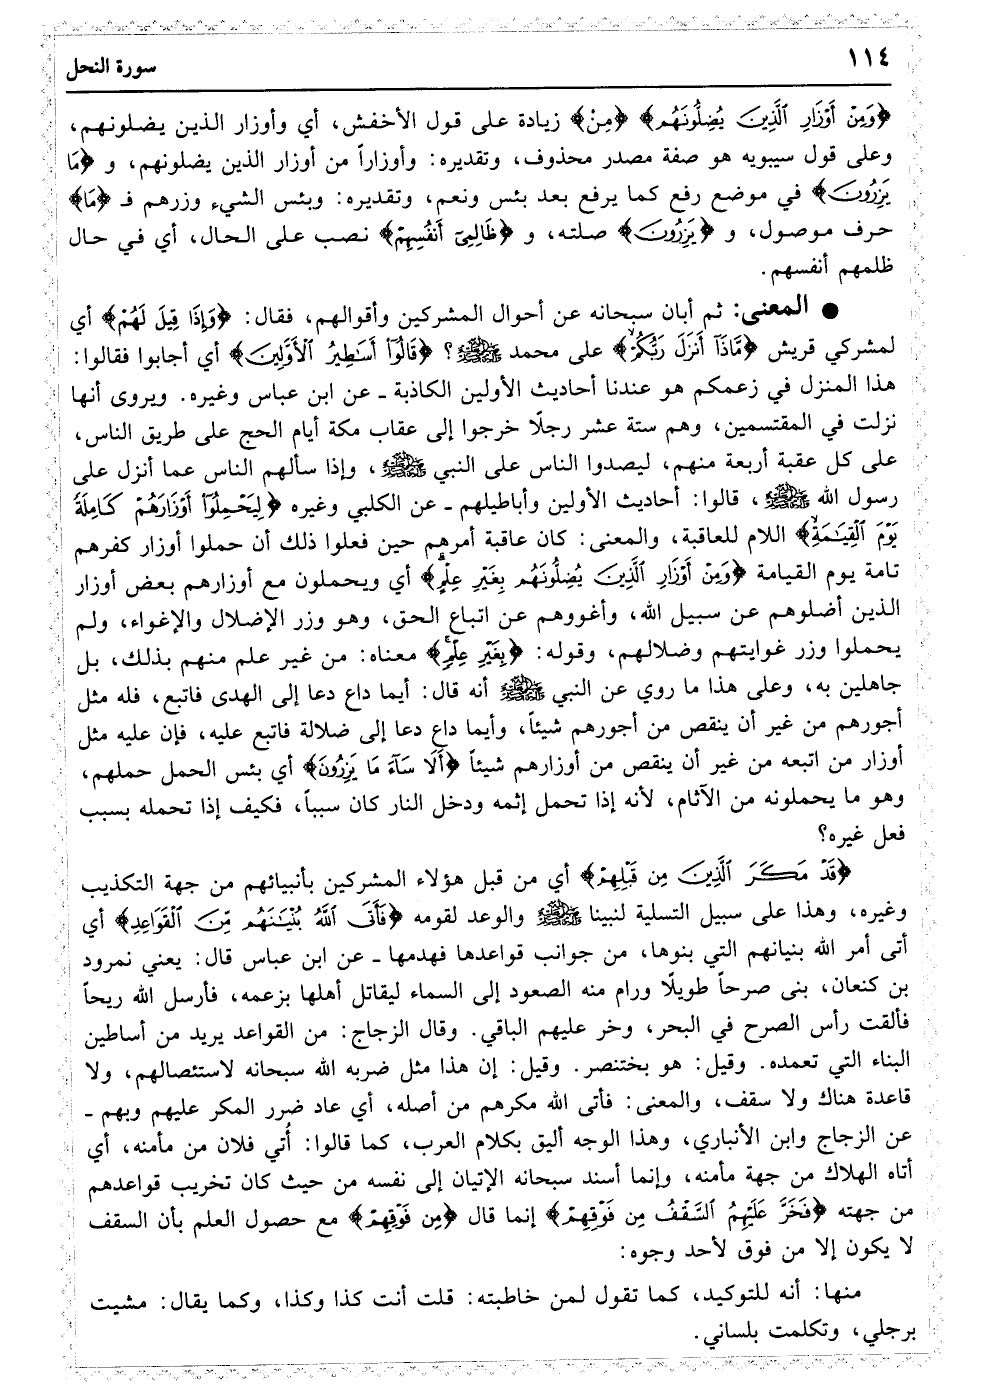 ١١٤
سورة النحل
﴿وَمِنْ أَوْزَارِ الَّذِينَ يُضِلُّونَهُم﴾ ﴿مِنْ﴾ زيادة على قول الأخفش، أي وأوزار الذين يضلونهم،
وعلى قول سيبويه هو صفة مصدر محذوف، وتقديره: وأوزاراً من أوزار الذين يضلونهم، و ﴿مَا
يَزِرُونَ﴾ في موضع رفع كما يرفع بعد بئس ونعم، وتقديره: وبئس الشيء وزرهم فـ ﴿مَا﴾
حرف موصول، و ﴿يَزِرُونَ﴾ صلته، و ﴿ظَالِمِي أَنفُسِهِمْ﴾ نصب على الحال، أي في حال
ظلمهم أنفسهم.
● المعنى: ثم أبان سبحانه عن أحوال المشركين وأقوالهم، فقال: ﴿وَإِذَا قِيلَ لَهُمْ﴾ أي
لمشركي قريش ﴿مَّاذَا أَنزَلَ رَبُّكُمْ﴾ على محمد ﷺ؟ ﴿قَالُوا أَسَاطِيرُ الْأَوَّلِينَ﴾ أي أجابوا فقالوا:
هذا المنزل في زعمكم هو عندنا أحاديث الأولين الكاذبة ـ عن ابن عباس وغيره. ويروى أنها
نزلت في المقتسمين، وهم ستة عشر رجلًا خرجوا إلى عقاب مكة أيام الحج على طريق الناس،
على كل عقبة أربعة منهم، ليصدوا الناس على النبي ﷺ، وإذا سألهم الناس عما أنزل على
رسول الله ﷺ، قالوا: أحاديث الأولين وأباطيلهم ـ عن الكلبي وغيره ﴿لِيَحْمِلُوا أَوْزَارَهُمْ كَامِلَةً
يَوْمَ الْقِيَامَةِ﴾ اللام للعاقبة، والمعنى: كان عاقبة أمرهم حين فعلوا ذلك أن حملوا أوزار كفرهم
تامة يوم القيامة ﴿وَمِنْ أَوْزَارِ الَّذِينَ يُضِلُّونَهُم بِغَيْرِ عِلْمٍ﴾ أي ويحملون مع أوزارهم بعض أوزار
الذين أضلوهم عن سبيل الله، وأغووهم عن اتباع الحق، وهو وزر الإضلال والإغواء، ولم
يحملوا وزر غوايتهم وضلالهم، وقوله: ﴿بِغَيْرِ عِلْمٍ﴾ معناه: من غير علم منهم بذلك، بل
جاهلين به، وعلى هذا ما روي عن النبي ﷺ أنه قال: أيما داع دعا إلى الهدى فاتبع، فله مثل
أجورهم من غير أن ينقص من أجورهم شيئاً، وأيما داع دعا إلى ضلالة فاتبع عليه، فإن عليه مثل
أوزار من اتبعه من غير أن ينقص من أوزارهم شيئاً ﴿أَلَا سَاءَ مَا يَزِرُونَ﴾ أي بئس الحمل حملهم،
وهو ما يحملونه من الآثام، لأنه إذا تحمل إثمه ودخل النار كان سبباً، فكيف إذا تحمله بسبب
فعل غيره؟
﴿قَدْ مَكَرَ الَّذِينَ مِن قَبْلِهِمْ﴾ أي من قبل هؤلاء المشركين بأنبيائهم من جهة التكذيب
وغيره، وهذا على سبيل التسلية لنبينا ﷺ والوعد لقومه ﴿فَأَتَى اللَّهُ بُنْيَانَهُم مِّنَ الْقَوَاعِدِ﴾ أي
أتى أمر الله بنيانهم التي بنوها، من جوانب قواعدها فهدمها ـ عن ابن عباس قال: يعني نمرود
بن كنعان، بنى صرحاً طويلًا ورام منه الصعود إلى السماء ليقاتل أهلها بزعمه، فأرسل الله ريحاً
فألقت رأس الصرح في البحر، وخر عليهم الباقي. وقال الزجاج: من القواعد يريد من أساطين
البناء التي تعمده. وقيل: هو بختنصر. وقيل: إن هذا مثل ضربه الله سبحانه لاستئصالهم، ولا
قاعدة هناك ولا سقف، والمعنى: فأتى الله مكرهم من أصله، أي عاد ضرر المكر عليهم وبهم ـ
عن الزجاج وابن الأنباري، وهذا الوجه أليق بكلام العرب، كما قالوا: أُتي فلان من مأمنه، أي
أتاه الهلاك من جهة مأمنه، وإنما أسند سبحانه الإتيان إلى نفسه من حيث كان تخريب قواعدهم
من جهته ﴿فَخَرَّ عَلَيْهِمُ السَّقْفُ مِن فَوْقِهِمْ﴾ إنما قال ﴿مِن فَوْقِهِمْ﴾ مع حصول العلم بأن السقف
لا يكون إلا من فوق لأحد وجوه:
منها: أنه للتوكيد، كما تقول لمن خاطبته: قلت أنت كذا وكذا، وكما يقال: مشيت
برجلي، وتكلمت بلساني.